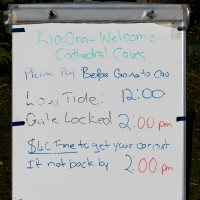 Kia Ora - Welcome
Cathedral Caves
Please Pay Before Going to Cave
Low Tide: 12:00
Gate Locked 2:00 pm
to get your car out
If not back by 2:00 pm